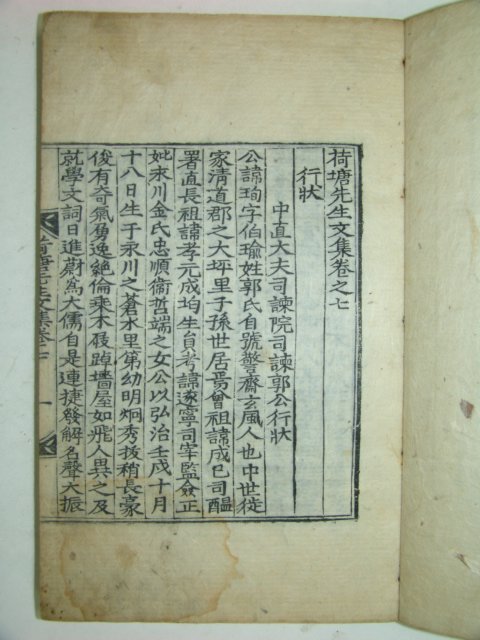 荷塘先生文集卷之七
行狀
中直大夫司諫院司諫郭公行狀
公諱珣字伯瑜姓郭氏自號警齋玄風人也中世徙
家淸道郡之大坪里子孫世居焉曾祖諱成己司醞
署直長祖諱孝元成均生員考諱遂寧司宰監僉正
妣永川金氏忠順衞哲端之女公以弘治壬戌十月
十八日生于永川之蒼水里第幼明炯秀拔稍長豪
俊有奇氣勇逸絶倫乘木屐踔墻屋如飛人異之及
就學文詞日進蔚爲大儒自是連捷發解名聲大振